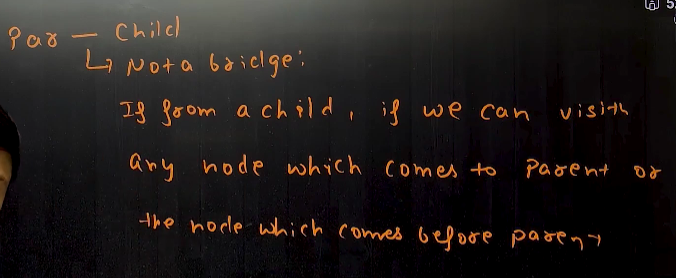 Par — Child
↳ Not a bridge:
If from a child, if we can visith
any node which comes to Parent or
the node which comes before parent